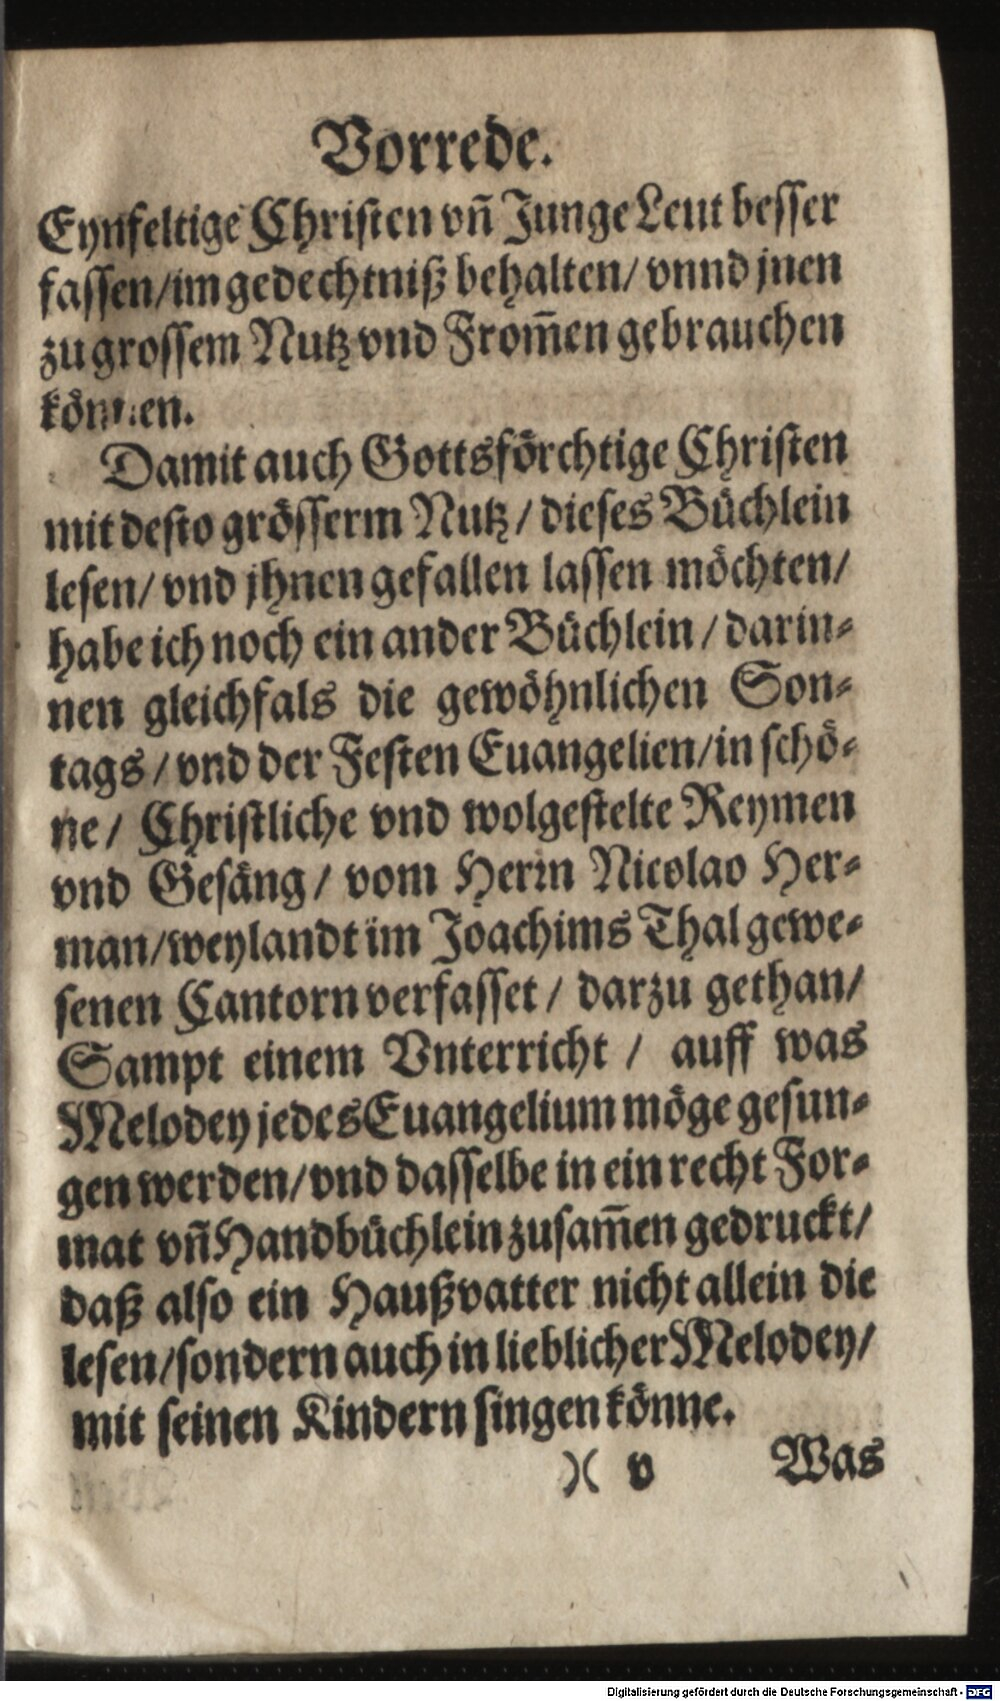 Vorrede.
Eynfeltige Christen vn̄ Junge Leut besser
fassen/im gedechtniß behalten/ vnnd jnen
zu grossem Nutz vnd From̄en gebrauchen
können.
Damit auch Gottsförchtige Christen
mit desto grösserm Nutz/ dieses Büchlein
lesen/ vnd jhnen gefallen lassen möchten/
habe ich noch ein ander Büchlein/ darin-
nen gleichfals die gewöhnlichen Son-
tags/ vnd der Festen Euangelien/in schö-
ne/ Christliche vnd wolgestelte Reymen
vnd Gesäng/ vom Herrn Nicolao Her-
man/weylandt im Joachims Thal gewe-
senen Cantorn verfasset/ darzu gethan/
Sampt einem Vnterricht/ auff was
Melodey jedes Euangelium möge gesun-
gen werden/vnd dasselbe in ein recht For-
mat vn̄ Handbüchlein zusam̄en gedruckt/
daß also ein Haußvatter nicht allein die
lesen/sondern auch in lieblicher Melodey/
mit seinen Kindern singen könne.
)( v Was
Digitalisierung gefördert durch die Deutsche Forschungsgemeinschaft - DFG